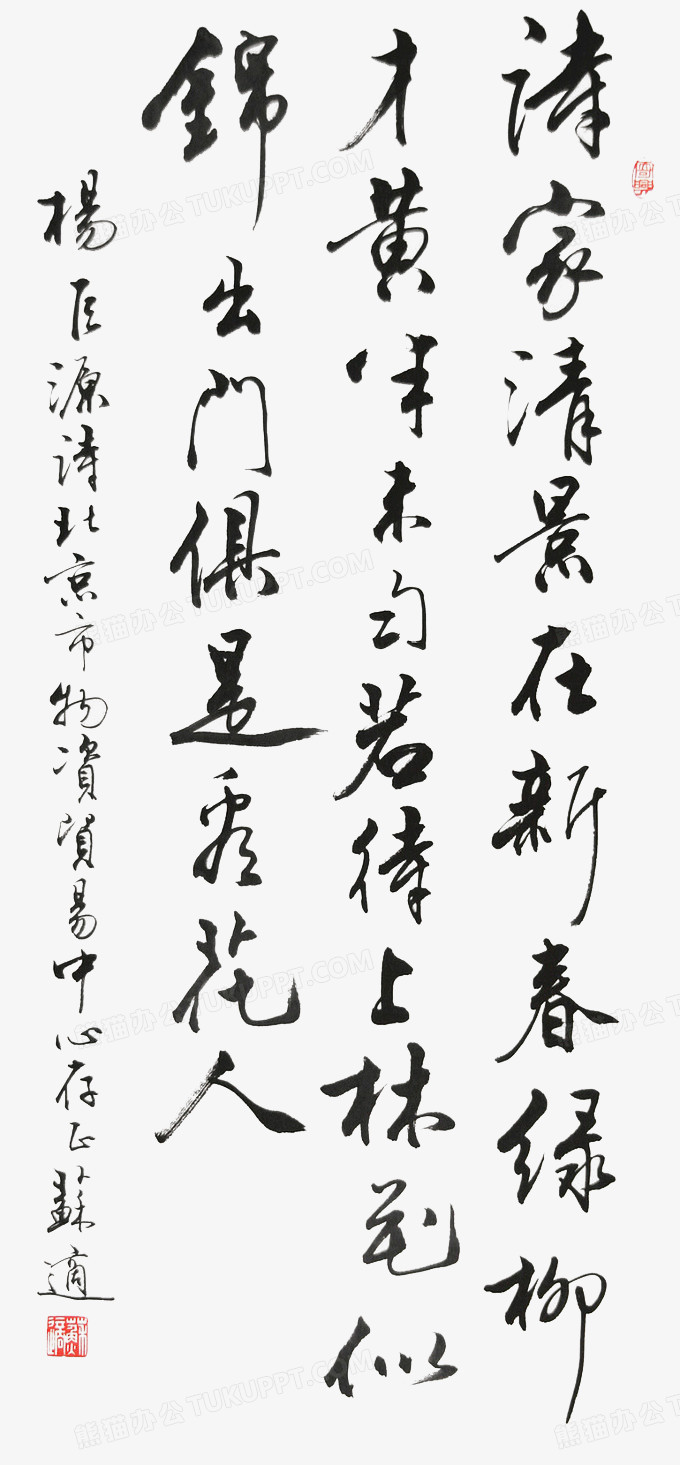 詩家清景在新春綠柳
才黃半未勻若待上林花似
錦出門俱是看花人
楊巨源詩北京市物資貿易中心存正蘇適
熊猫办公 TUKUPPT.COM